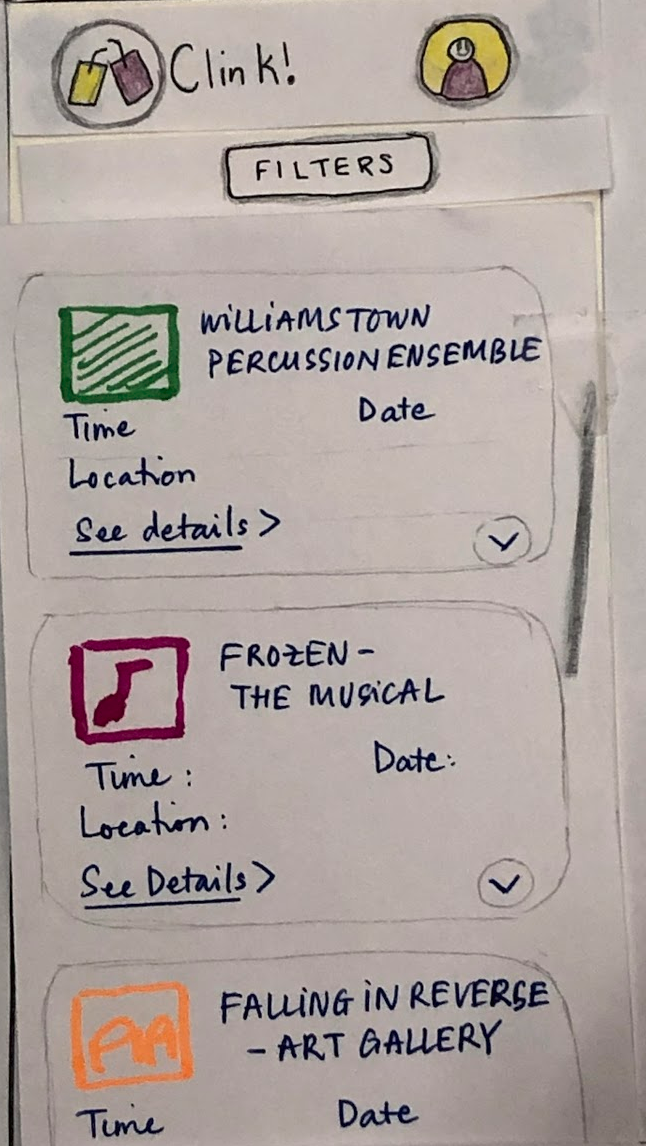 Clink!
FILTERS
WILLIAMSTOWN
PERCUSSION ENSEMBLE
Time Date
Location
See details >
FROZEN -
THE MUSICAL
Time : Date:
Location :
See Details >
FALLING IN REVERSE
- ART GALLERY
Time Date